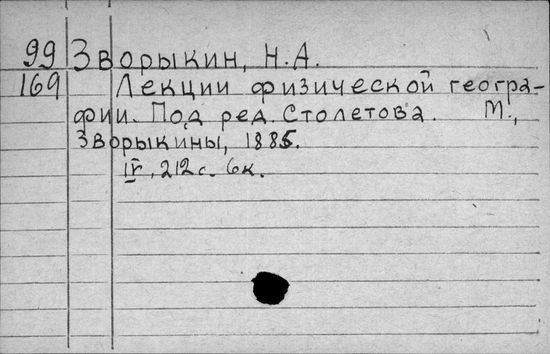 99 Зворыкин, Н.А.
169 Лекции физической геогра-
фии. Под ред. Столетова. М.,
Зворыкины, 1885.
IV, 212 с. 6к.